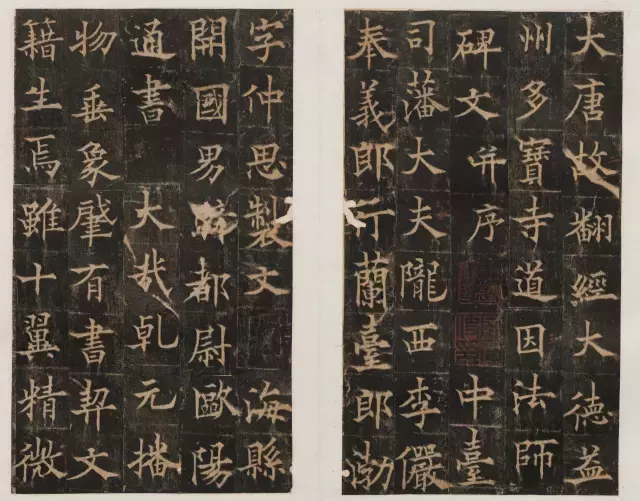 大唐故翻經大德益
州多寶寺道因法師
碑文并序 中臺
司藩大夫隴西李儼
奉義郎行蘭臺郎渤
字仲思製文 海縣
開國男都尉歐陽
通書 大哉乹元播
物垂象肇有書契文
籍生焉雖十翼精微